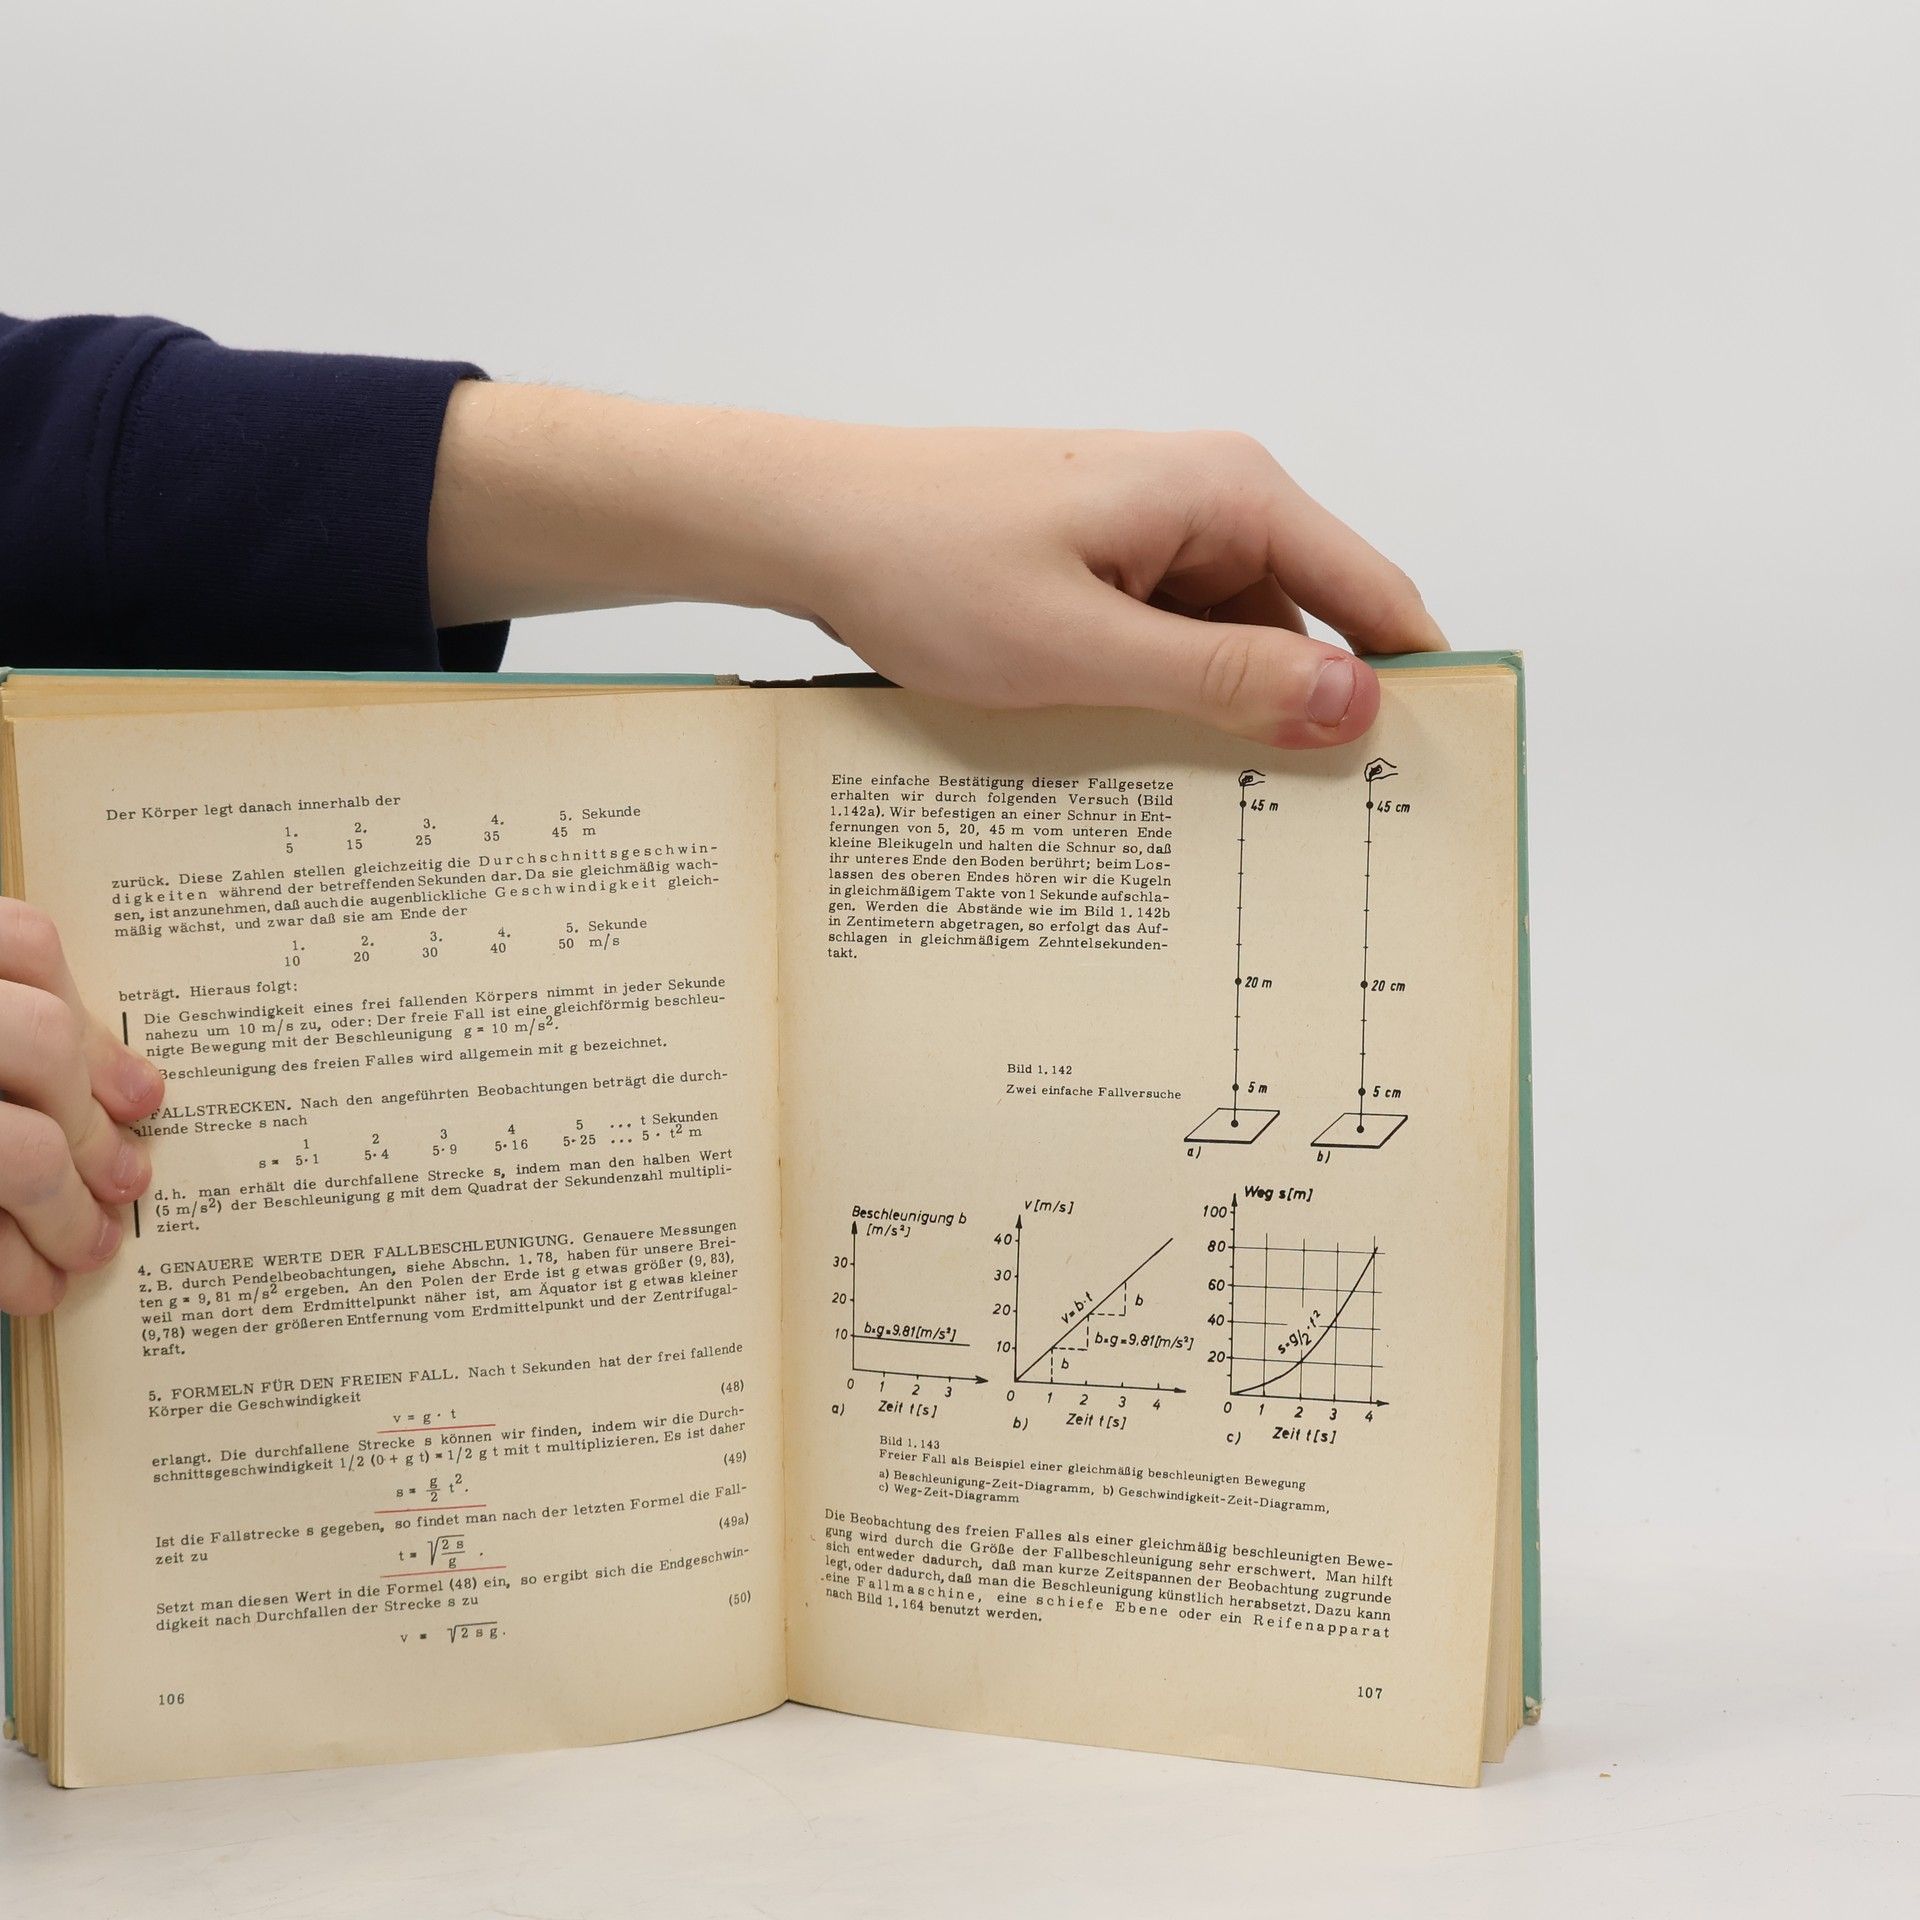 Der Körper legt danach innerhalb der
1. 2. 3. 4. 5. Sekunde
5 15 25 35 45 m
zurück. Diese Zahlen stellen gleichzeitig die Durchschnittsgeschwin-
digkeiten während der betreffenden Sekunden dar. Da sie gleichmäßig wach-
sen, ist anzunehmen, daß auch die augenblickliche Geschwindigkeit gleich-
mäßig wächst, und zwar daß sie am Ende der
1. 2. 3. 4. 5. Sekunde
10 20 30 40 50 m/s
beträgt. Hieraus folgt:
Die Geschwindigkeit eines frei fallenden Körpers nimmt in jeder Sekunde
nahezu um 10 m/s zu, oder: Der freie Fall ist eine gleichförmig beschleu-
nigte Bewegung mit der Beschleunigung g = 10 m/s².
Beschleunigung des freien Falles wird allgemein mit g bezeichnet.
FALLSTRECKEN. Nach den angeführten Beobachtungen beträgt die durch-
fallende Strecke s nach
1 2 3 4 5 ... t Sekunden
s = 5·1 5·4 5·9 5·16 5·25 ... 5 · t² m
d.h. man erhält die durchfallene Strecke s, indem man den halben Wert
(5 m/s²) der Beschleunigung g mit dem Quadrat der Sekundenzahl multipli-
ziert.
4. GENAUERE WERTE DER FALLBESCHLEUNIGUNG. Genauere Messungen
z. B. durch Pendelbeobachtungen, siehe Abschn. 1.78, haben für unsere Brei-
ten g = 9,81 m/s² ergeben. An den Polen der Erde ist g etwas größer (9,83),
weil man dort dem Erdmittelpunkt näher ist, am Äquator ist g etwas kleiner
(9,78) wegen der größeren Entfernung vom Erdmittelpunkt und der Zentrifugal-
kraft.
5. FORMELN FÜR DEN FREIEN FALL. Nach t Sekunden hat der frei fallende
Körper die Geschwindigkeit
v = g · t (48)
erlangt. Die durchfallene Strecke s können wir finden, indem wir die Durch-
schnittsgeschwindigkeit 1/2 (0 + g t) = 1/2 g t mit t multiplizieren. Es ist daher
s = g/2 t². (49)
Ist die Fallstrecke s gegeben, so findet man nach der letzten Formel die Fall-
zeit zu
t = √(2 s/g) . (49a)
Setzt man diesen Wert in die Formel (48) ein, so ergibt sich die Endgeschwin-
digkeit nach Durchfallen der Strecke s zu
v = √2 s g. (50)
106
Eine einfache Bestätigung dieser Fallgesetze
erhalten wir durch folgenden Versuch (Bild
1.142a). Wir befestigen an einer Schnur in Ent-
fernungen von 5, 20, 45 m vom unteren Ende
kleine Bleikugeln und halten die Schnur so, daß
ihr unteres Ende den Boden berührt; beim Los-
lassen des oberen Endes hören wir die Kugeln
in gleichmäßigem Takte von 1 Sekunde aufschla-
gen. Werden die Abstände wie im Bild 1.142b
in Zentimetern abgetragen, so erfolgt das Auf-
schlagen in gleichmäßigem Zehntelsekunden-
takt.
45 m
20 m
5 m
a)
45 cm
20 cm
5 cm
b)
Bild 1.142
Zwei einfache Fallversuche
Beschleunigung b
[m/s²]
30
20
10
b=g=9,81[m/s²]
0 1 2 3
a) Zeit t[s]
v[m/s]
40
30
20
10
v=b·t
b
b=g=9,81[m/s²]
b
0 1 2 3 4
b) Zeit t[s]
Weg s[m]
100
80
60
40
20
s=g/2·t²
0 1 2 3 4
c) Zeit t[s]
Bild 1.143
Freier Fall als Beispiel einer gleichmäßig beschleunigten Bewegung
a) Beschleunigung-Zeit-Diagramm, b) Geschwindigkeit-Zeit-Diagramm,
c) Weg-Zeit-Diagramm
Die Beobachtung des freien Falles als einer gleichmäßig beschleunigten Bewe-
gung wird durch die Größe der Fallbeschleunigung sehr erschwert. Man hilft
sich entweder dadurch, daß man kurze Zeitspannen der Beobachtung zugrunde
legt, oder dadurch, daß man die Beschleunigung künstlich herabsetzt. Dazu kann
eine Fallmaschine, eine schiefe Ebene oder ein Reifenapparat
nach Bild 1.164 benutzt werden.
107